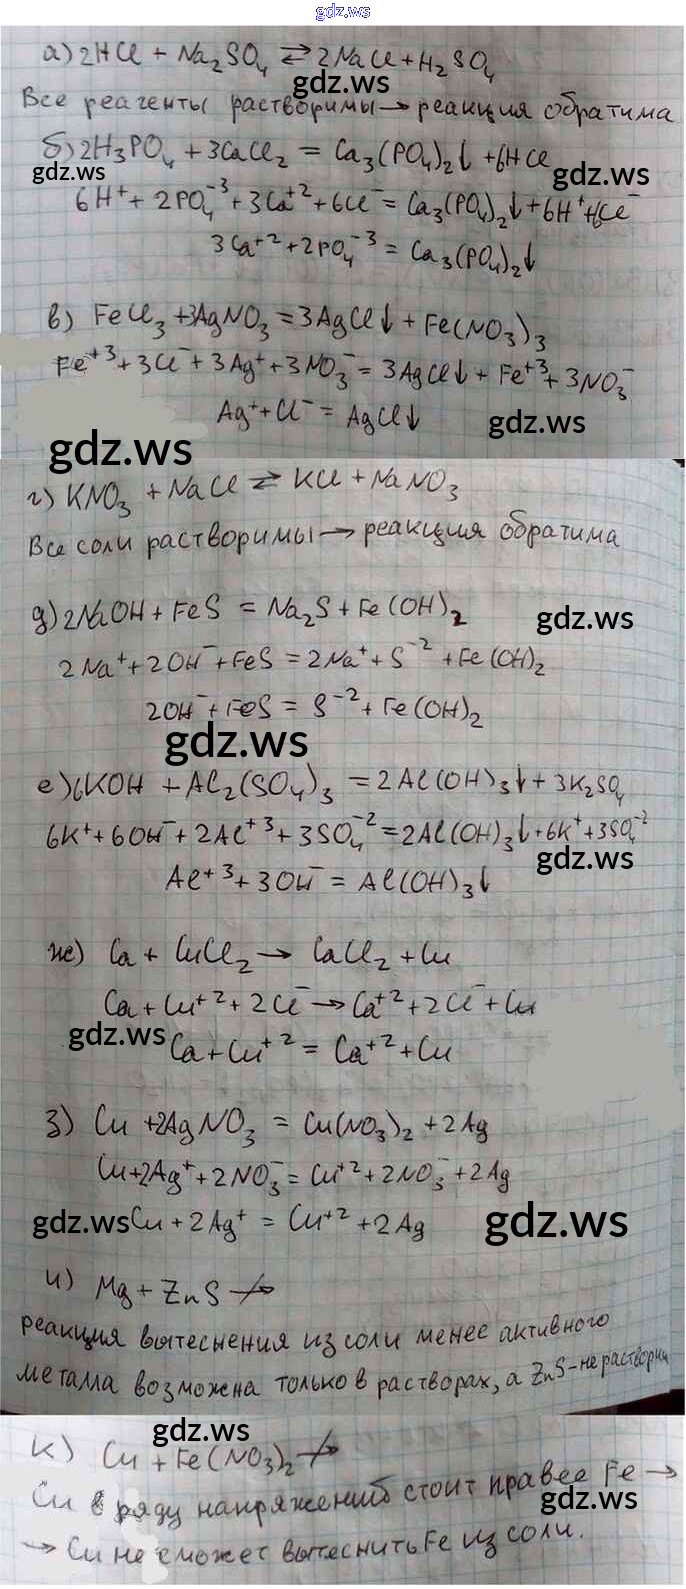 gdz.ws
а) 2HCl + Na₂SO₄ ⇄ 2NaCl + H₂SO₄
gdz.ws
Все реагенты растворимы → реакция обратима
б) 2H₃PO₄ + 3CaCl₂ = Ca₃(PO₄)₂↓ + 6HCl
gdz.ws gdz.ws
6H⁺ + 2PO₄⁻³ + 3Ca⁺² + 6Cl⁻ = Ca₃(PO₄)₂↓ + 6H⁺ + 6Cl⁻
3Ca⁺² + 2PO₄⁻³ = Ca₃(PO₄)₂↓
в) FeCl₃ + 3AgNO₃ = 3AgCl↓ + Fe(NO₃)₃
Fe⁺³ + 3Cl⁻ + 3Ag⁺ + 3NO₃⁻ = 3AgCl↓ + Fe⁺³ + 3NO₃⁻
Ag⁺ + Cl⁻ = AgCl↓
gdz.ws
gdz.ws
г) KNO₃ + NaCl ⇄ KCl + NaNO₃
Все соли растворимы → реакция обратима
д) 2NaOH + FeS = Na₂S + Fe(OH)₂
gdz.ws
2Na⁺ + 2OH⁻ + FeS = 2Na⁺ + S⁻² + Fe(OH)₂
2OH⁻ + FeS = S⁻² + Fe(OH)₂
gdz.ws
е) 6KOH + Al₂(SO₄)₃ = 2Al(OH)₃↓ + 3K₂SO₄
6K⁺ + 6OH⁻ + 2Al⁺³ + 3SO₄⁻² = 2Al(OH)₃↓ + 6K⁺ + 3SO₄⁻²
gdz.ws
Al⁺³ + 3OH⁻ = Al(OH)₃↓
ж) Ca + CuCl₂ → CaCl₂ + Cu
Ca + Cu⁺² + 2Cl⁻ → Ca⁺² + 2Cl⁻ + Cu
gdz.ws
Ca + Cu⁺² = Ca⁺² + Cu
з) Cu + 2AgNO₃ = Cu(NO₃)₂ + 2Ag
Cu + 2Ag⁺ + 2NO₃⁻ = Cu⁺² + 2NO₃⁻ + 2Ag
gdz.ws Cu + 2Ag⁺ = Cu⁺² + 2Ag gdz.ws
и) Mg + ZnS ↛
реакция вытеснения из соли менее активного
металла возможна только в растворах, а ZnS - не растворим
gdz.ws
к) Cu + Fe(NO₃)₂ ↛
Cu в ряду напряжений стоит правее Fe →
gdz.ws
→ Cu не сможет вытеснить Fe из соли.